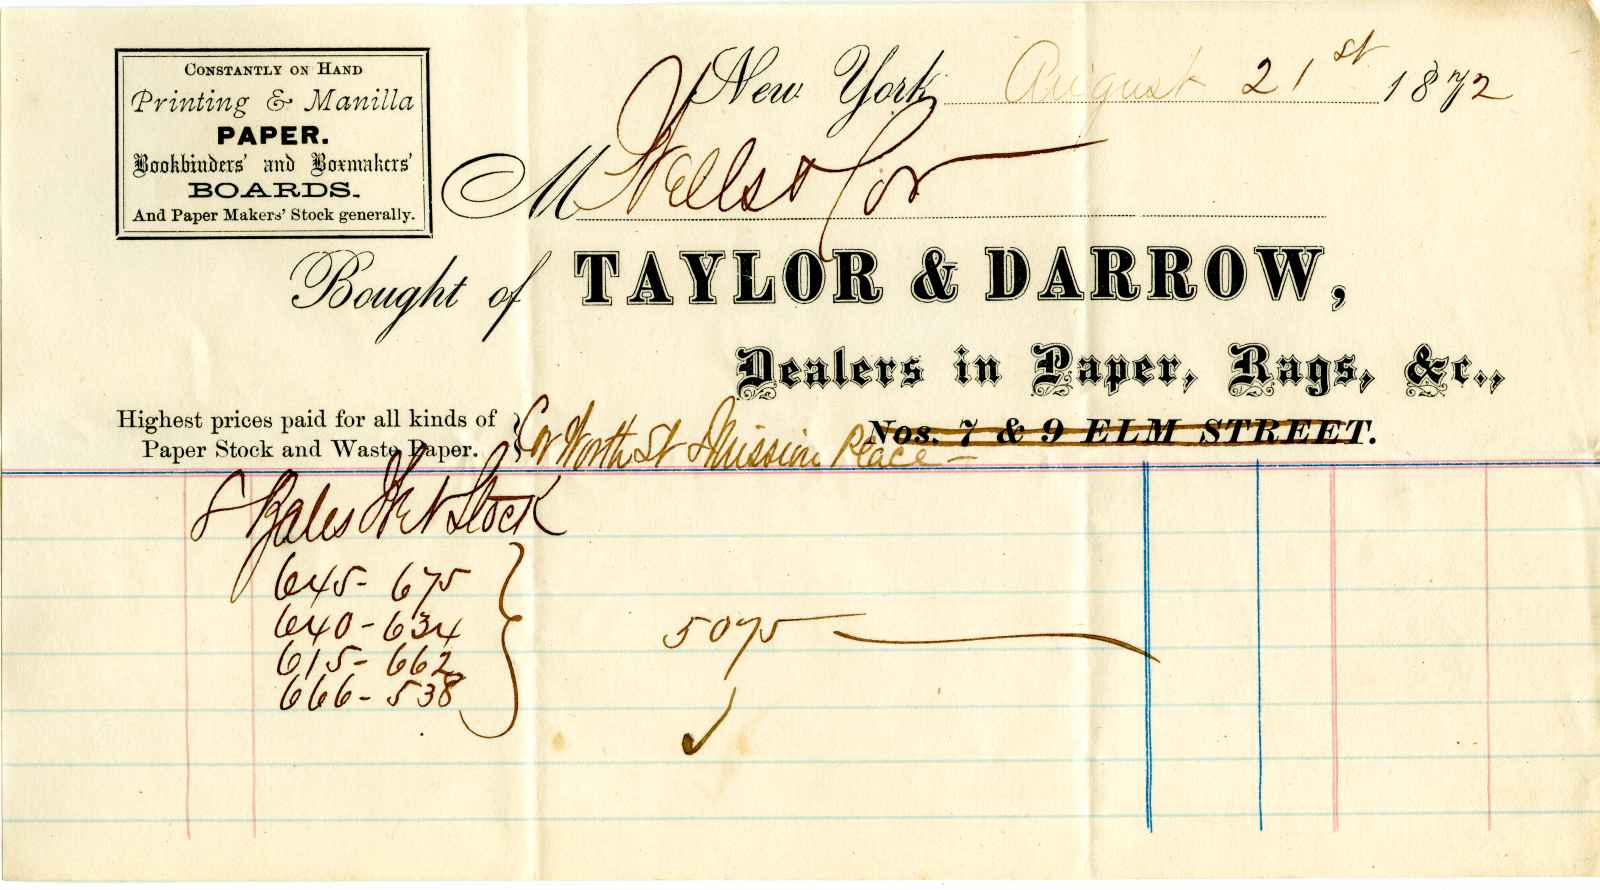 CONSTANTLY ON HAND
Printing & Manilla
PAPER.
Bookbinders' and Boxmakers'
BOARDS.
And Paper Makers' Stock generally.
New York August 21st 1872
M Wells & Co
Bought of TAYLOR & DARROW,
Dealers in Paper, Rags, &c.,
Nos. 7 & 9 ELM STREET.
Highest prices paid for all kinds of
Paper Stock and Waste Paper.
Cor Worth St & Mission Place —
8 Bales Stock
645 - 675
640 - 634
615 - 662
666 - 538
5075